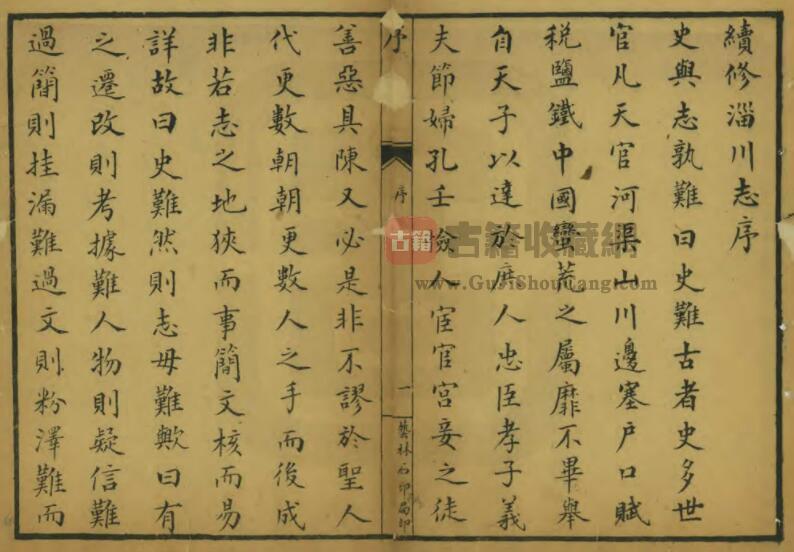 續修淄川志序
史與志孰難曰史難古者史多世
官凡天官河渠山川邊塞戶口賦
稅鹽鐵中國蠻荒之屬靡不畢舉
自天子以達於庶人忠臣孝子義
夫節婦孔壬憸人宦官宮妾之徒
序
序
一
藝林石印局印
善惡具陳又必是非不謬於聖人
代更數朝朝更數人之手而後成
非若志之地狹而事簡文核而易
詳故曰史難然則志毋難歟曰有
之遷改則考據難人物則疑信難
過簡則挂漏難過文則粉澤難而
古籍
古籍收藏網
www.GuJiShouCang.com